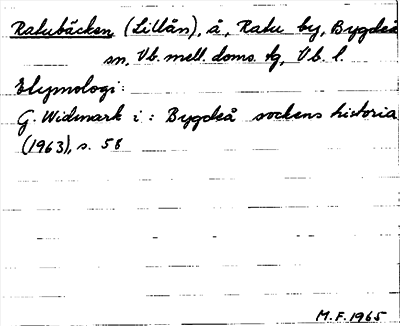 Ratubäcken (Lillån), å, Ratu by, Bygdeå
sn, Vb. mell. doms. tg, Vb. l.
Etymologi:
G. Widmark i : Bygdeå sockens historia
(1963), s. 58
M.F. 1965